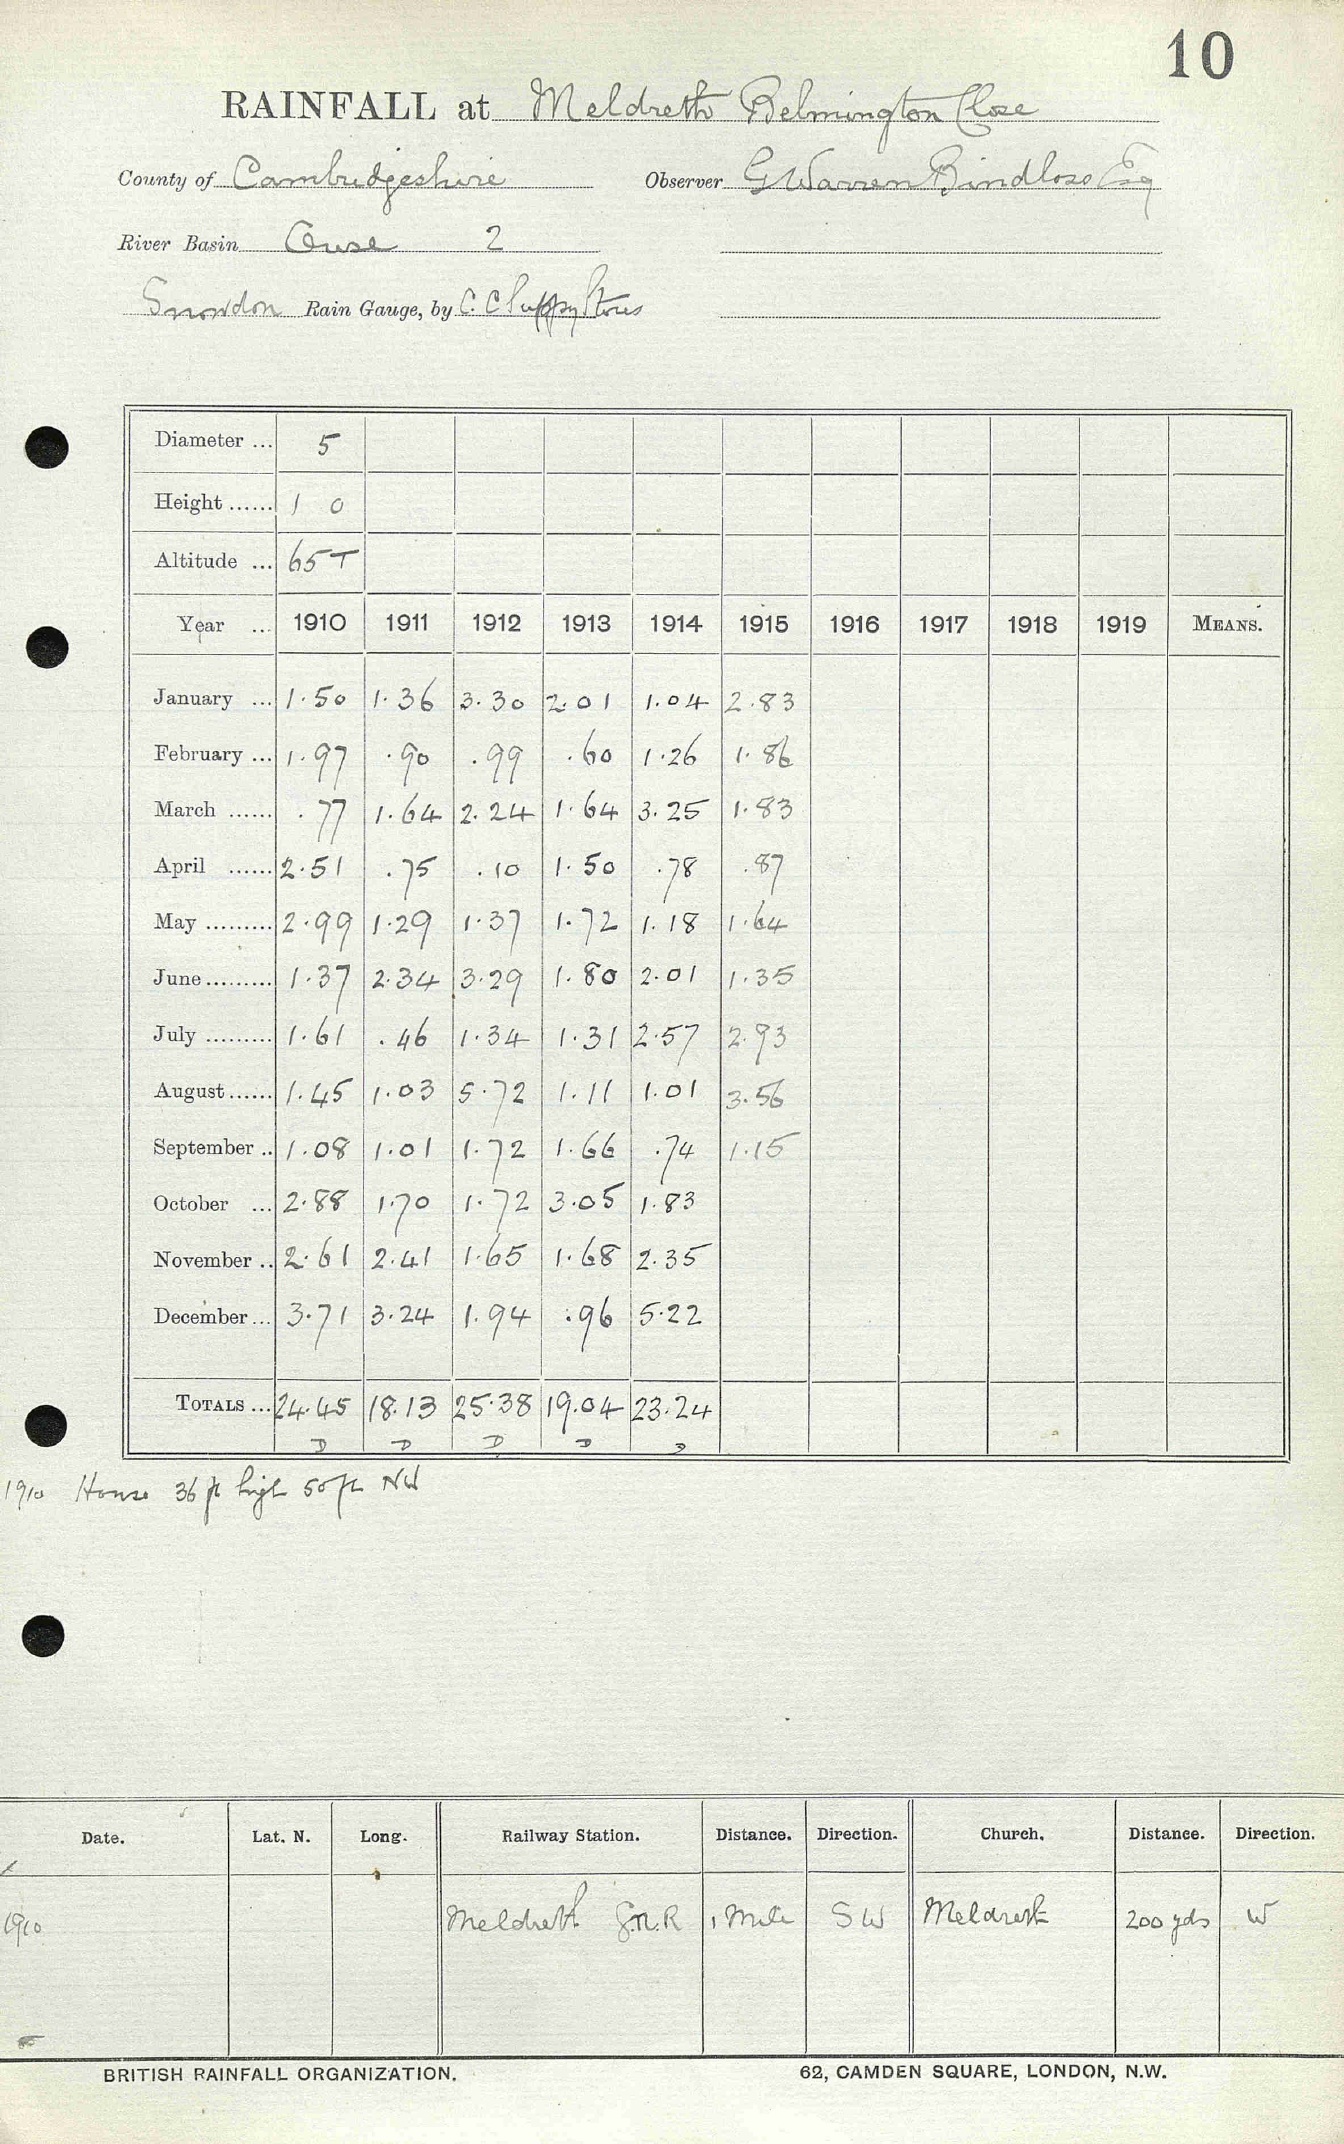 10
RAINFALL at Meldreth Belmington Close
County of Cambridgeshire Observer G Warren Bindloss Esq
River Basin Ouse 2
Snowdon Rain Gauge, by C. C Stores
Diameter ... 5
Height ...... 1 0
Altitude ... 65 T
Year ... 1910 1911 1912 1913 1914 1915 1916 1917 1918 1919 MEANS.
January ... 1.50 1.36 3.30 2.01 1.04 2.83
February ... 1.97 .90 .99 .60 1.26 1.86
March ...... .77 1.64 2.24 1.64 3.25 1.83
April ...... 2.51 .75 .10 1.50 .78 .87
May ......... 2.99 1.29 1.37 1.72 1.18 1.64
June ......... 1.37 2.34 3.29 1.80 2.01 1.35
July ......... 1.61 .46 1.34 1.31 2.57 2.93
August ...... 1.45 1.03 5.72 1.11 1.01 3.56
September .. 1.08 1.01 1.72 1.66 .74 1.15
October ... 2.88 1.70 1.72 3.05 1.83
November .. 2.61 2.41 1.65 1.68 2.35
December ... 3.71 3.24 1.94 .96 5.22
TOTALS ... 24.45 18.13 25.38 19.04 23.24
D D D D D
1910 House 36 ft high 50 ft NW
Date. Lat. N. Long. Railway Station. Distance. Direction. Church. Distance. Direction.
1910 Meldreth G.N.R 1 Mile SW Meldreth 200 yds W
BRITISH RAINFALL ORGANIZATION. 62, CAMDEN SQUARE, LONDON, N.W.